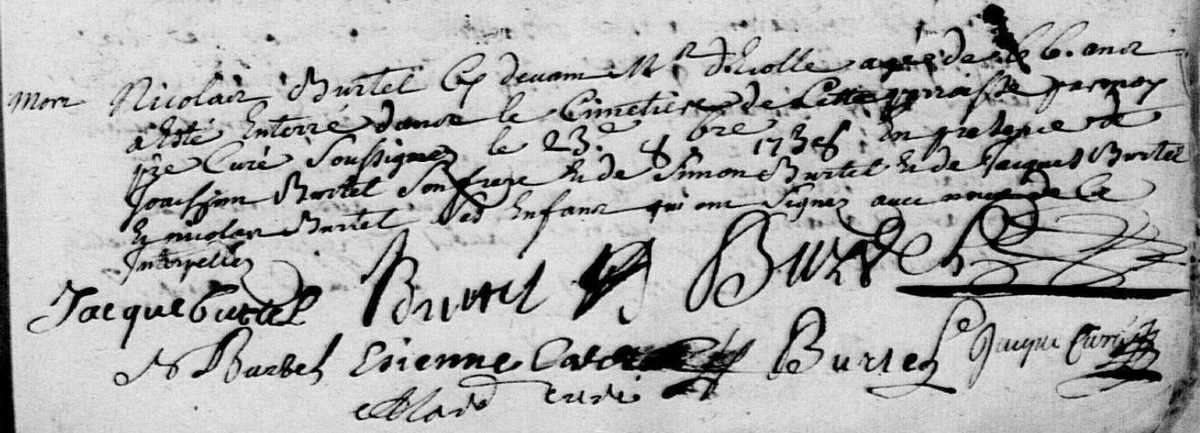 mort Nicolas Burtel Cy devant Mr d'Ecolle agé de 66. ans
a Esté Enterré dans le Cimetiere de Cette parroisse par moy
ptre Curé Soussigné le 23e 8bre 1736 En presence de
Joachim Burtel Son frere Et de Simon Burtel Et de Jacques Burtel
Et nicolas Burtel ses Enfans qui ont Signez avec nous de Ce
Interpellez
Jacque burtel Burtel Burtel
N Burtel Etienne Burtel Jacque
curé